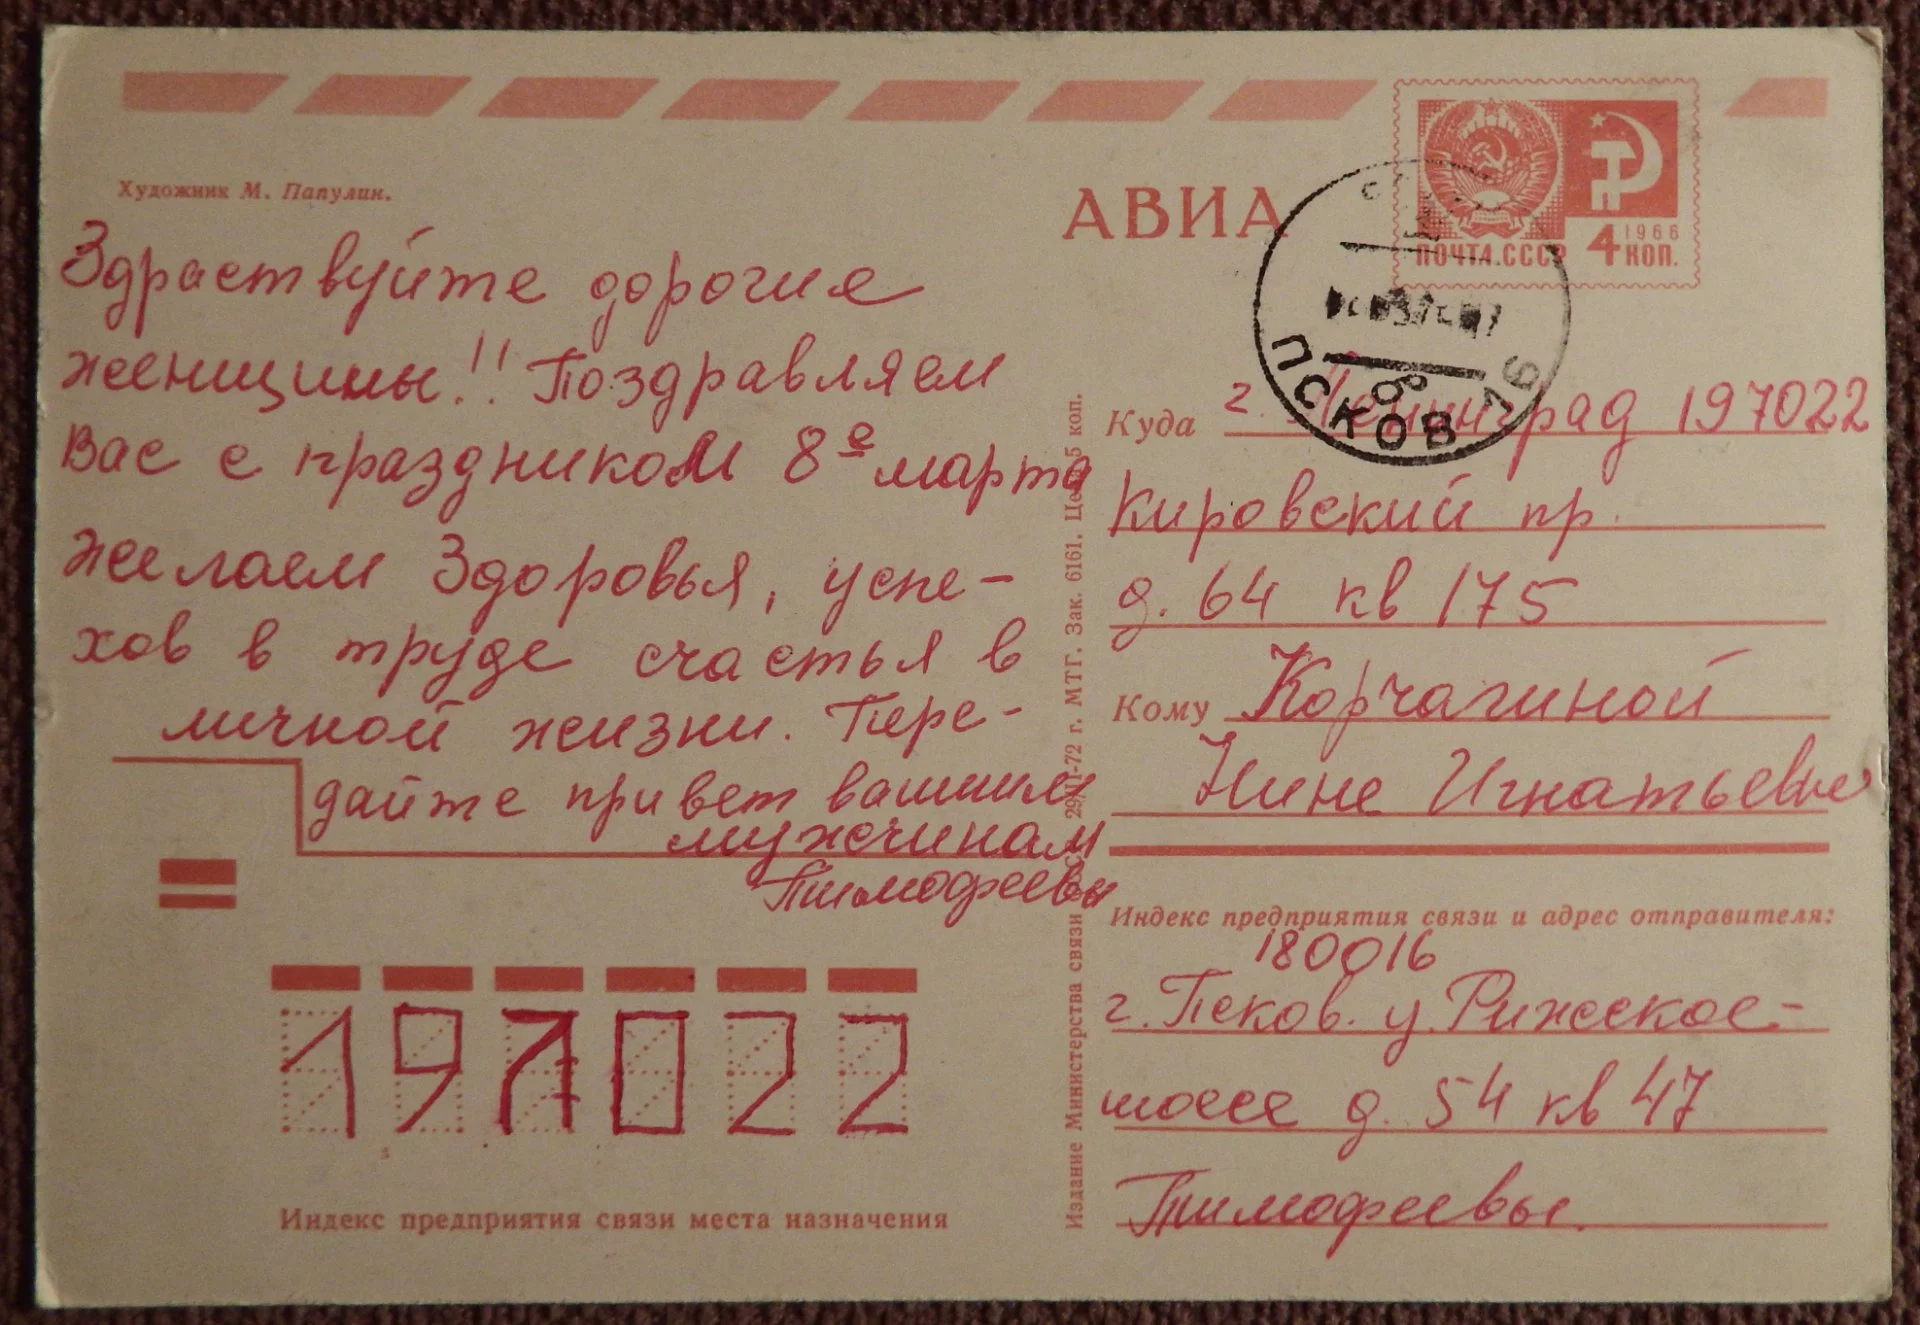 Художник М. Папулин.
АВИА
ПОЧТА СССР
1966
4 КОП.
ПСКОВ
Здраствуйте дорогие
женщины!! Поздравляем
Вас с праздником 8е марта
желаем Здоровья, успе-
хов в труде счастья в
личной жизни. Пере-
дайте привет вашим
мужчинам
Тимофеевы
197022
Индекс предприятия связи места назначения
Издание Министерства связи СССР. 72 г. МТГ. Зак. 6161. Цена 5 коп.
Куда г. Ленинград 197022
Кировский пр.
д. 64 кв 175
Кому Корчагиной
Нине Игнатьевне
Индекс предприятия связи и адрес отправителя:
180016
г. Псков. у. Рижское-
шоссе д. 54 кв 47
Тимофеевы.